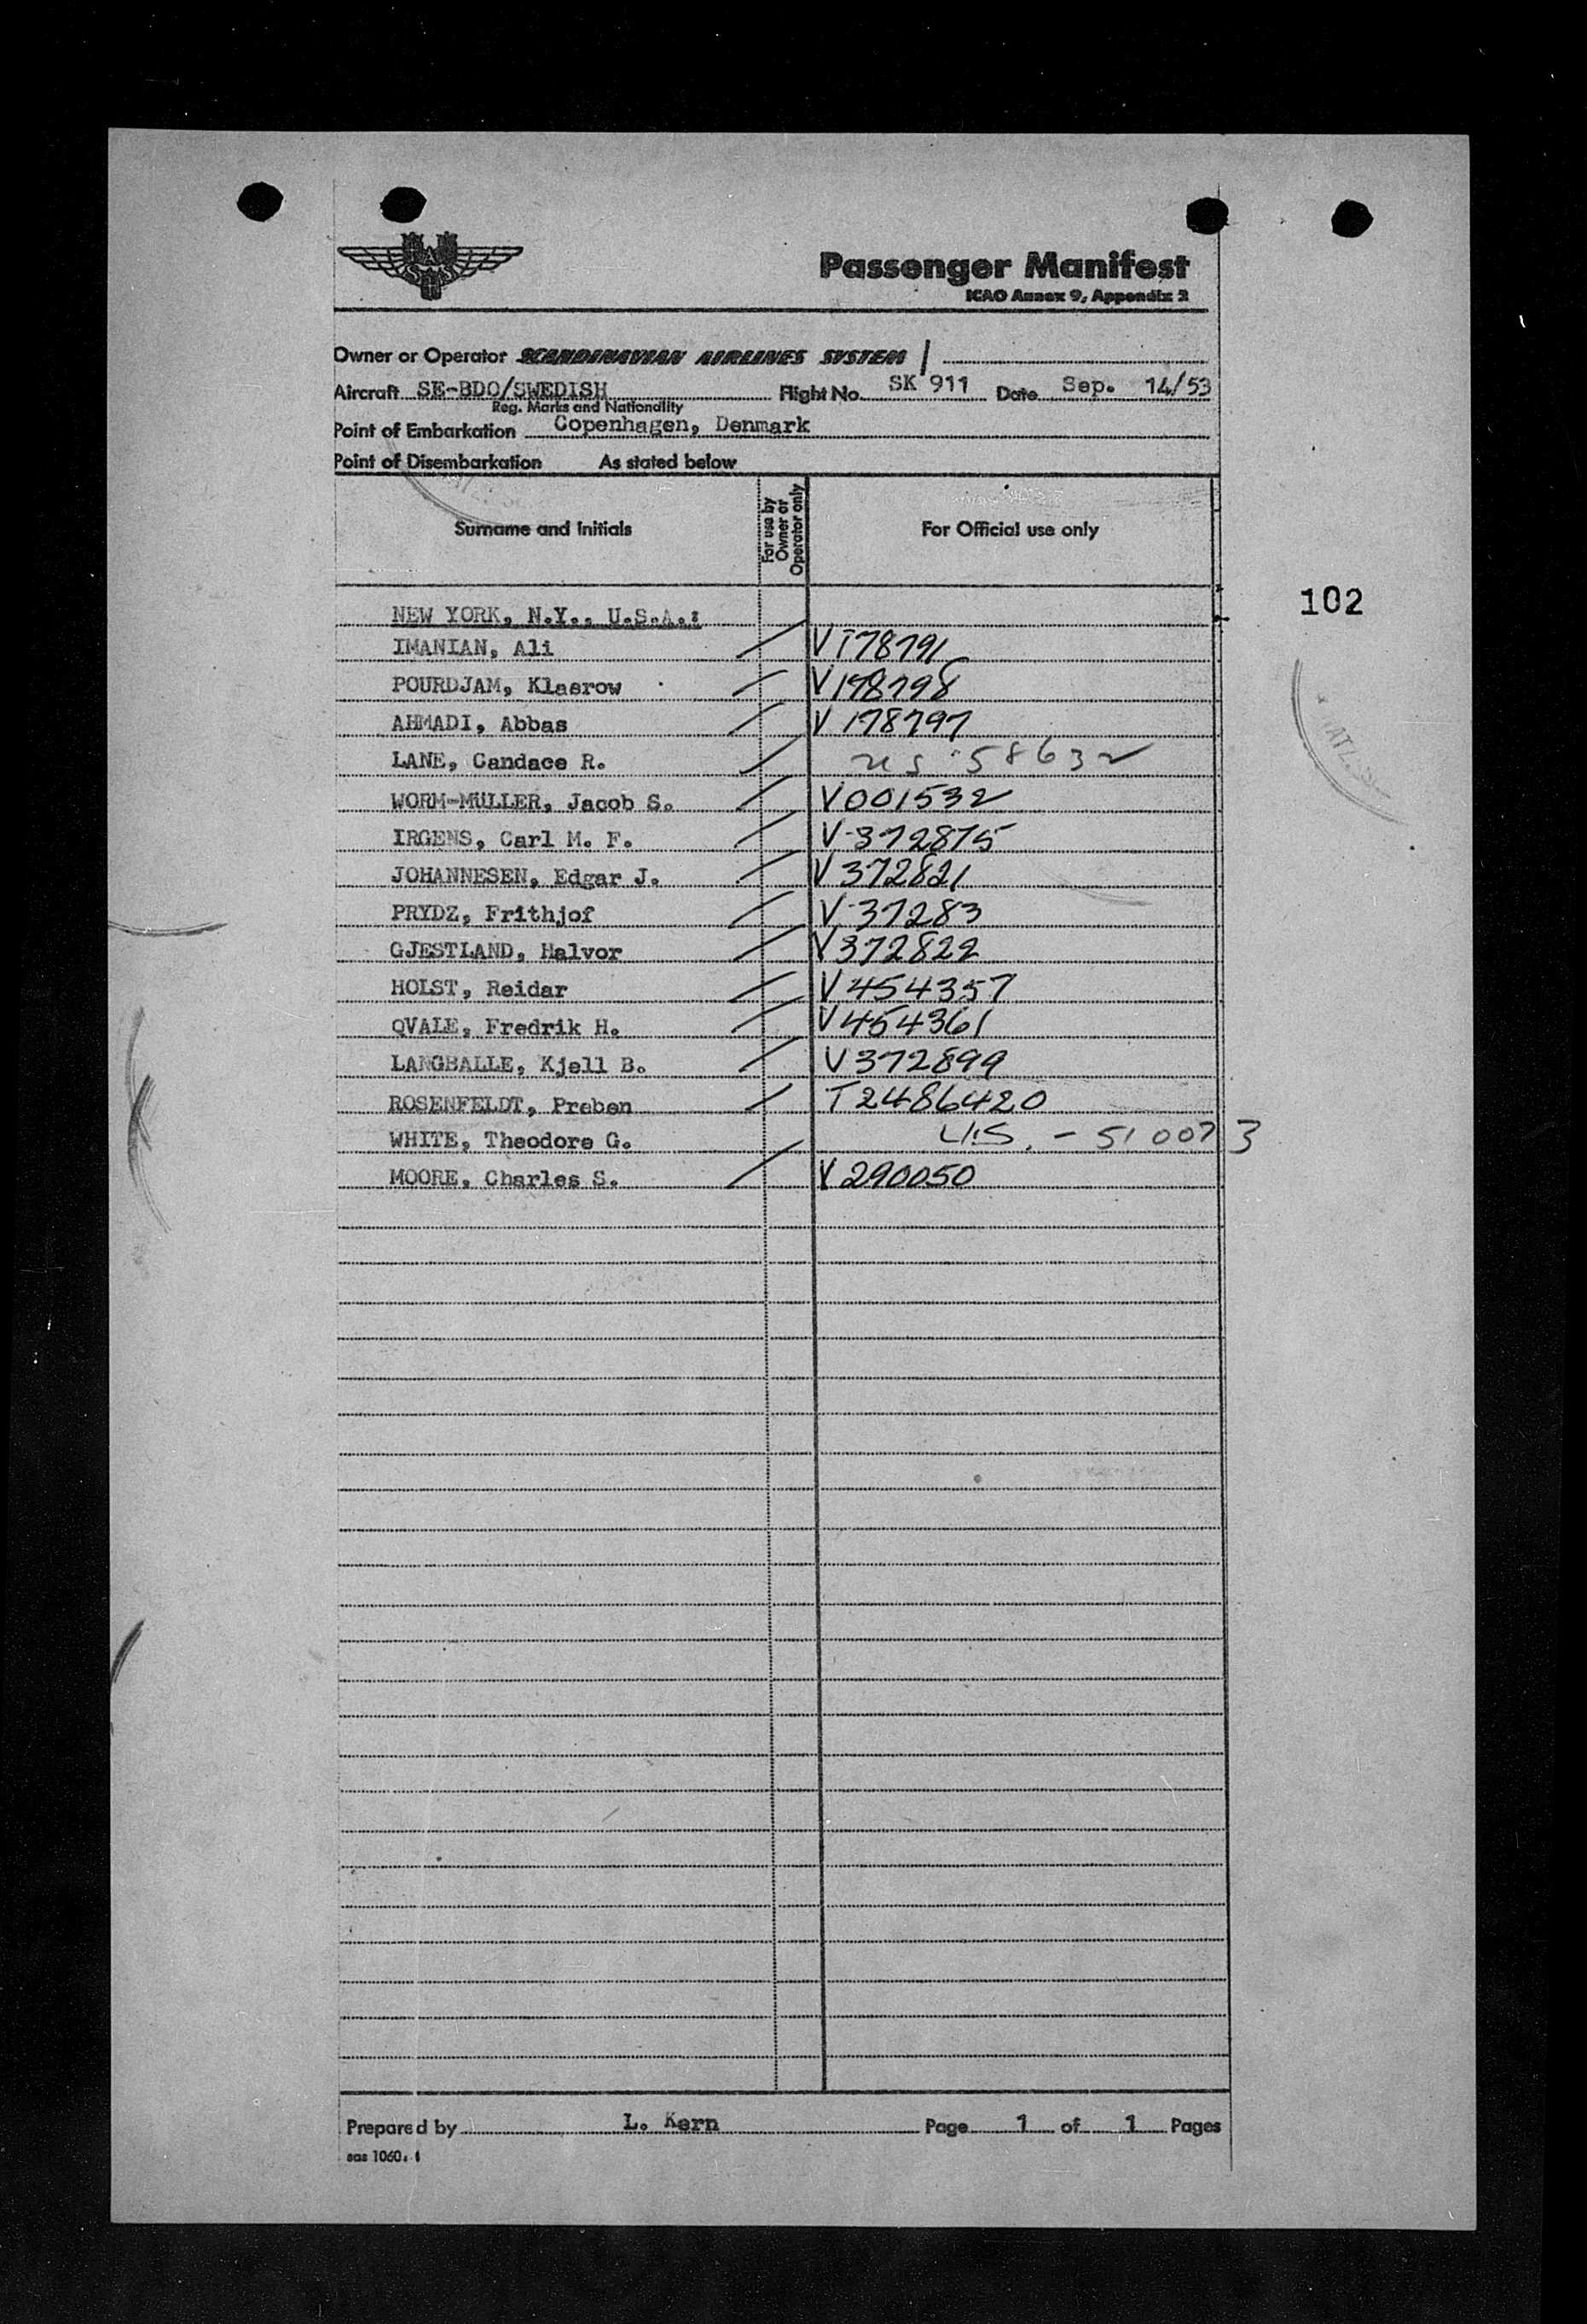 SAS
Passenger Manifest
ICAO Annex 9, Appendix 2
Owner or Operator SCANDINAVIAN AIRLINES SYSTEM /
Aircraft SE-BDO/SWEDISH Flight No. SK 911 Date Sep. 14/53
Reg. Marks and Nationality
Point of Embarkation Copenhagen, Denmark
Point of Disembarkation As stated below
Surname and Initials For use by Owner or Operator only For Official use only
102
NEW YORK, N.Y., U.S.A.:
IMANIAN, Ali V178791
POURDJAM, Klasrow V178798
AHMADI, Abbas V178797
LANE, Candace R. US 58632
WORM-MULLER, Jacob S. V001532
IRGENS, Carl M. F. V-372875
JOHANNESEN, Edgar J. V372821
PRYDZ, Frithjof V-37283
GJESTLAND, Halvor V372822
HOLST, Reidar V454357
QVALE, Fredrik H. V454361
LANGBALLE, Kjell B. V372899
ROSENFELDT, Preben T2486420
WHITE, Theodore G. U.S. - 510073
MOORE, Charles S. V290050
Prepared by L. Kern Page 1 of 1 Pages
sas 1060. 1